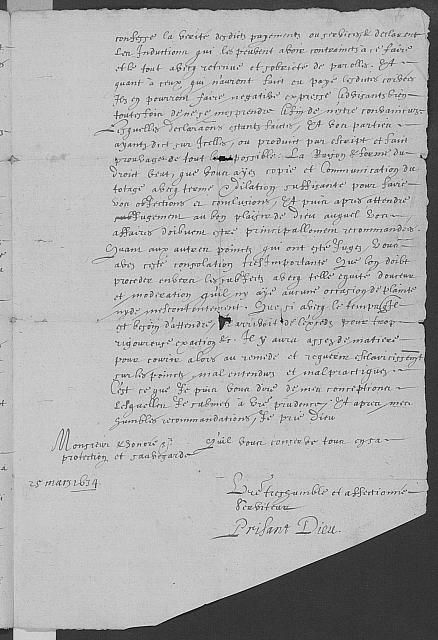 confesse la verité desdits payements ou services & declarent
les inductions qui les peuvent avoir contraincts a ce faire
et le tout avecq retenue et sobrieté de parolles. Et
quant a ceux qui n'auront fait ou payé lesdits corvees
ils en pourront faire negative expresse
toutesfois de ne se mesprendre afin de n'estre convaincus.
Lesquelles declaraons estants faites, Et vos parties
ayants dict sur Icelles, ou produit par escript et fait
de tout possible. La Raison & forme du
droit veut, que vous ayez copie et Communication du
totage avecq terme & dilation suffisante pour faire
voz obiections et conclusions, Et puis apres attendre
Jugement au bon plaisir de Dieu auquel voz
affairs doibvent estre principallement recommandees.
Quant aux autres points qui ont esté Jugez, Vous
avez ceste consolation tresimportante Que lon doibt
proceder envers les subiects avecq telle equité douceur
et moderation quil ny aye aucune occasion de plainte
ny de mescontentement. Que si avecq le temps
est besoin d'attendre arrivoit de l'exces pour trop
rigoureuse exaction &c. Il y aura assez de matiere
pour courir alors au remede et requerir esclarcissement
sur les points mal entendus et mal practiquez.
C'est ce que Je puis vous dire de mes conceptions
lesquelles Je submets a vre prudence, Et apres mes
humbles recommandations, Je prie Dieu
Monsieur & honoré Quil vous conserve tous en sa
protection et sauvegarde
25 mars 1634.
Vre treshumble et affectionné
Serviteur
Prisant Dieu.